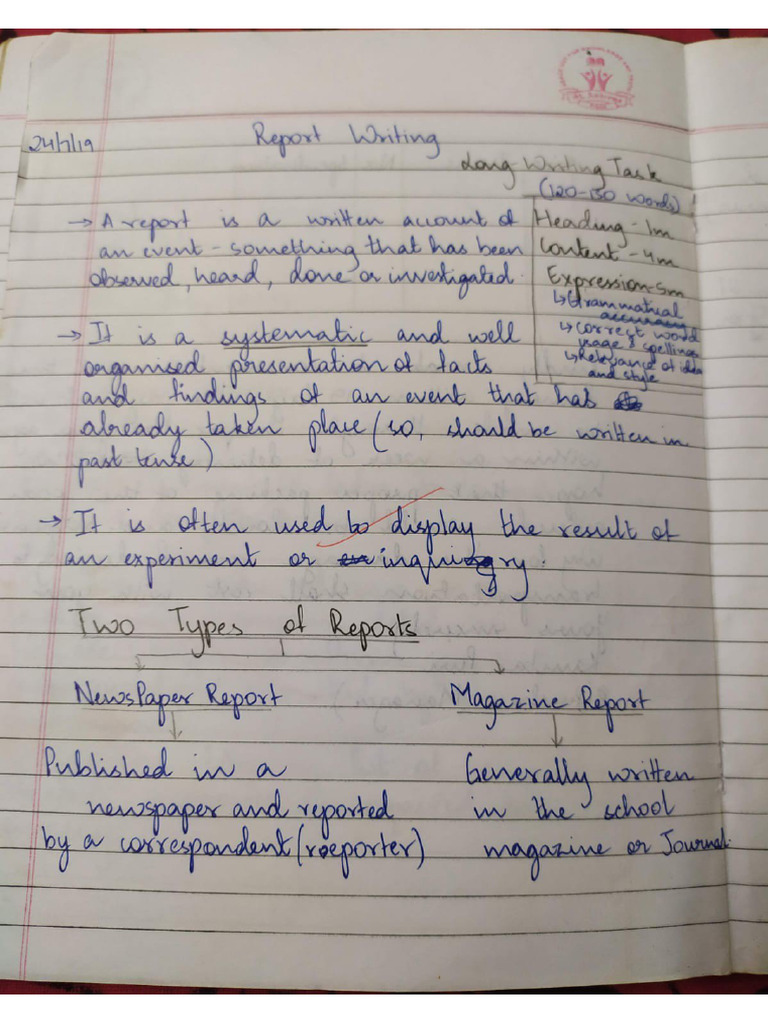 24/7/19
Report Writing
Long Writing Task
(120-150 words)
Heading - 1m
Content - 4m
Expression - 5m
↳ Grammatical accuracy
↳ correct word
usage & spellings
↳ Relevance of idea
and style
→ A report is a written account of
an event - something that has been
observed, heard, done or investigated.
→ It is a systematic and well
organised presentation of facts
and findings of an event that has
already taken place (so, should be written in
past tense)
→ It is often used to display the result of
an experiment or inquiry.
Two Types of Reports
NewsPaper Report
Magazine Report
Published in a
newspaper and reported
by a correspondent (reporter)
Generally written
in the school
magazine or Journal.